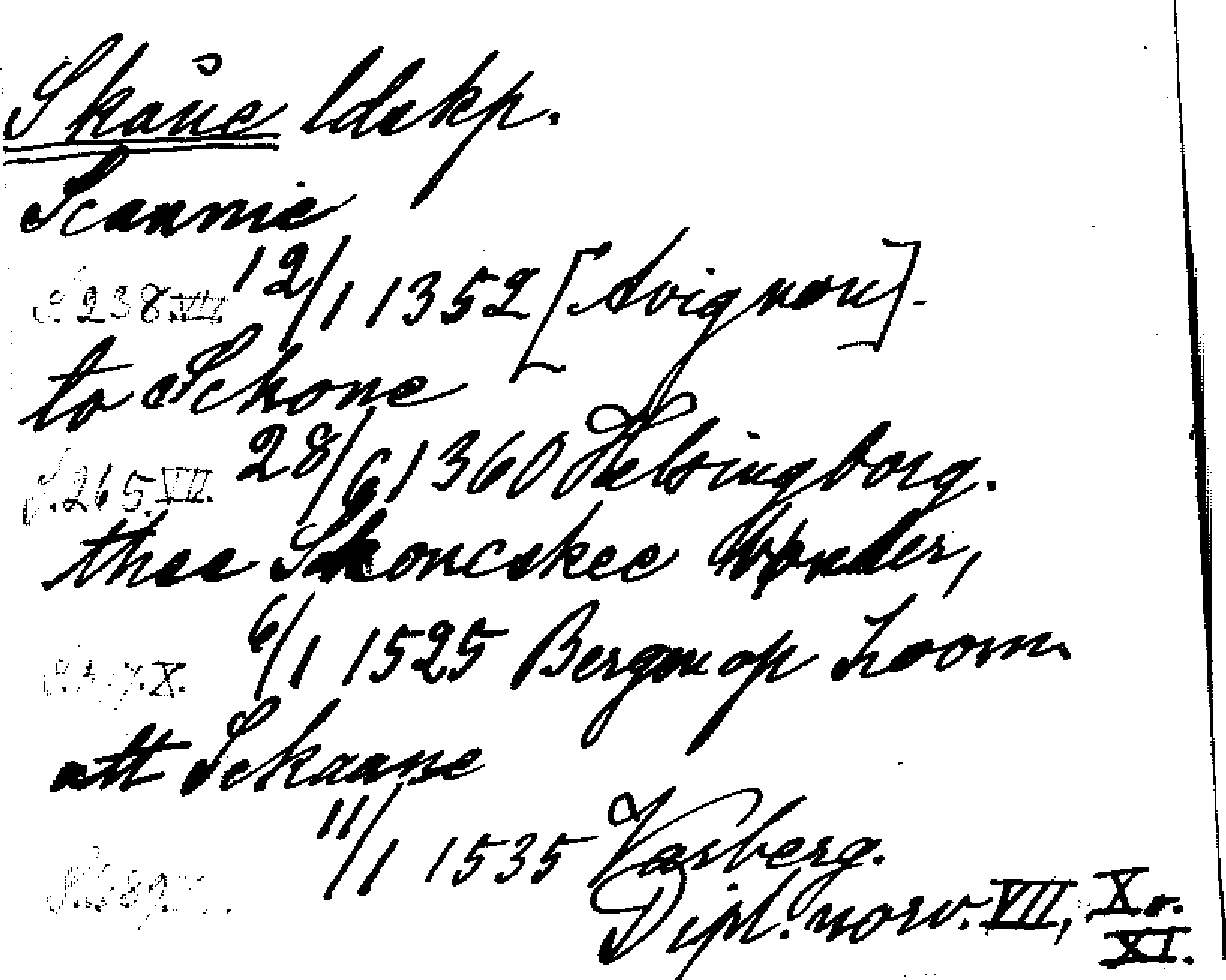 Skåne ldskp.
Scannie
S. 238 VII. 12/1 1352 [Avignon].
to Schone
S. 265. VII. 28/6 1360 Helsingborg.
thee Skoneskee bønder,
X. 6/1 1525 Bergen op Zoom.
att Sckaane
11/1 1535 Varberg.
Dipl. norv. VII, X o.
XI.